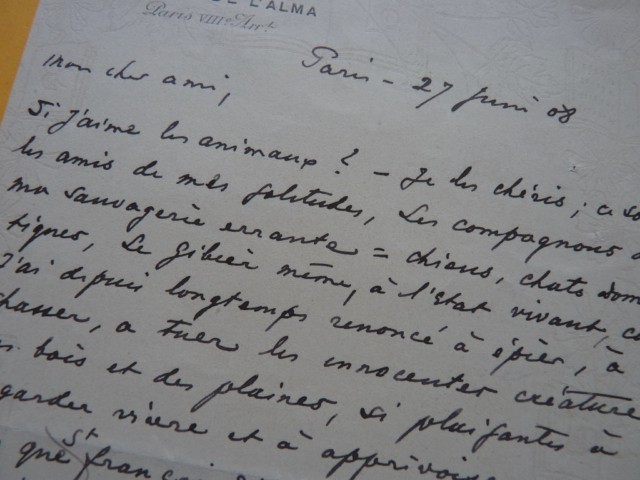 DE L'ALMA
Paris VIIIe Arrt
Paris - 27 Juin 08
mon cher ami,
Si j'aime les animaux ? - Je les chéris ; ce so
les amis de mes solitudes, les compagnons d
ma sauvagerie errante = chiens, chats dom
tiques, le gibier même, à l'état vivant, ca
j'ai depuis longtemps renoncé à épier, à
chasser, à tuer les innocentes créature
s bois et des plaines, si plaisantes à
garder vivre et à apprivoise
que St françois